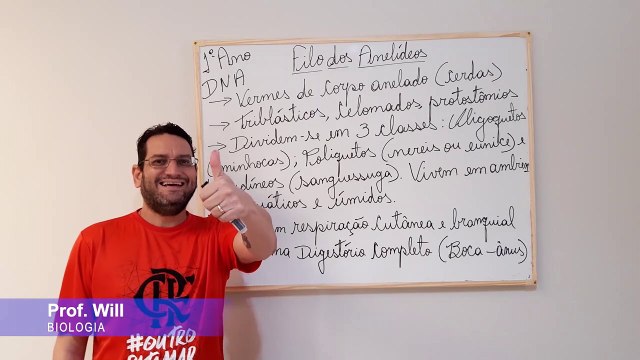 1º Ano
Filo dos Anelídeos
DNA
→ Vermes de corpo anelado (cerdas)
→ Triblásticos, celomados protostômios
→ Dividem-se em 3 classes: Oligoquetos
(minhocas); Poliquetos (nereis ou eunice) e
(sanguessuga). Vivem em
e úmidos.
respiração cutânea e branquial
Digestório Completo (Boca-ânus)
Prof. Will
BIOLOGIA
CRF
#OUTRO